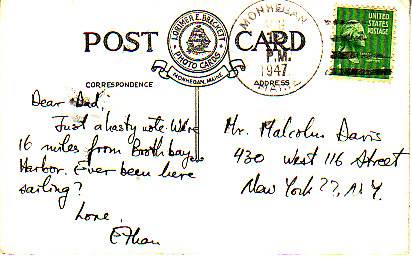 POST CARD
LORIMER E. BRACKETT
PHOTO CARDS
MONHEGAN, MAINE
MONHEGAN
P.M.
1947
MAINE
UNITED
STATES
POSTAGE
CORRESPONDENCE
ADDRESS
Dear Dad:
Just a hasty note. We're
16 miles from Boothbay
Harbor. Ever been here
sailing?
Love,
Ethan
Mr. Malcolm Davis
430 West 116 Street
New York 27, N.Y.